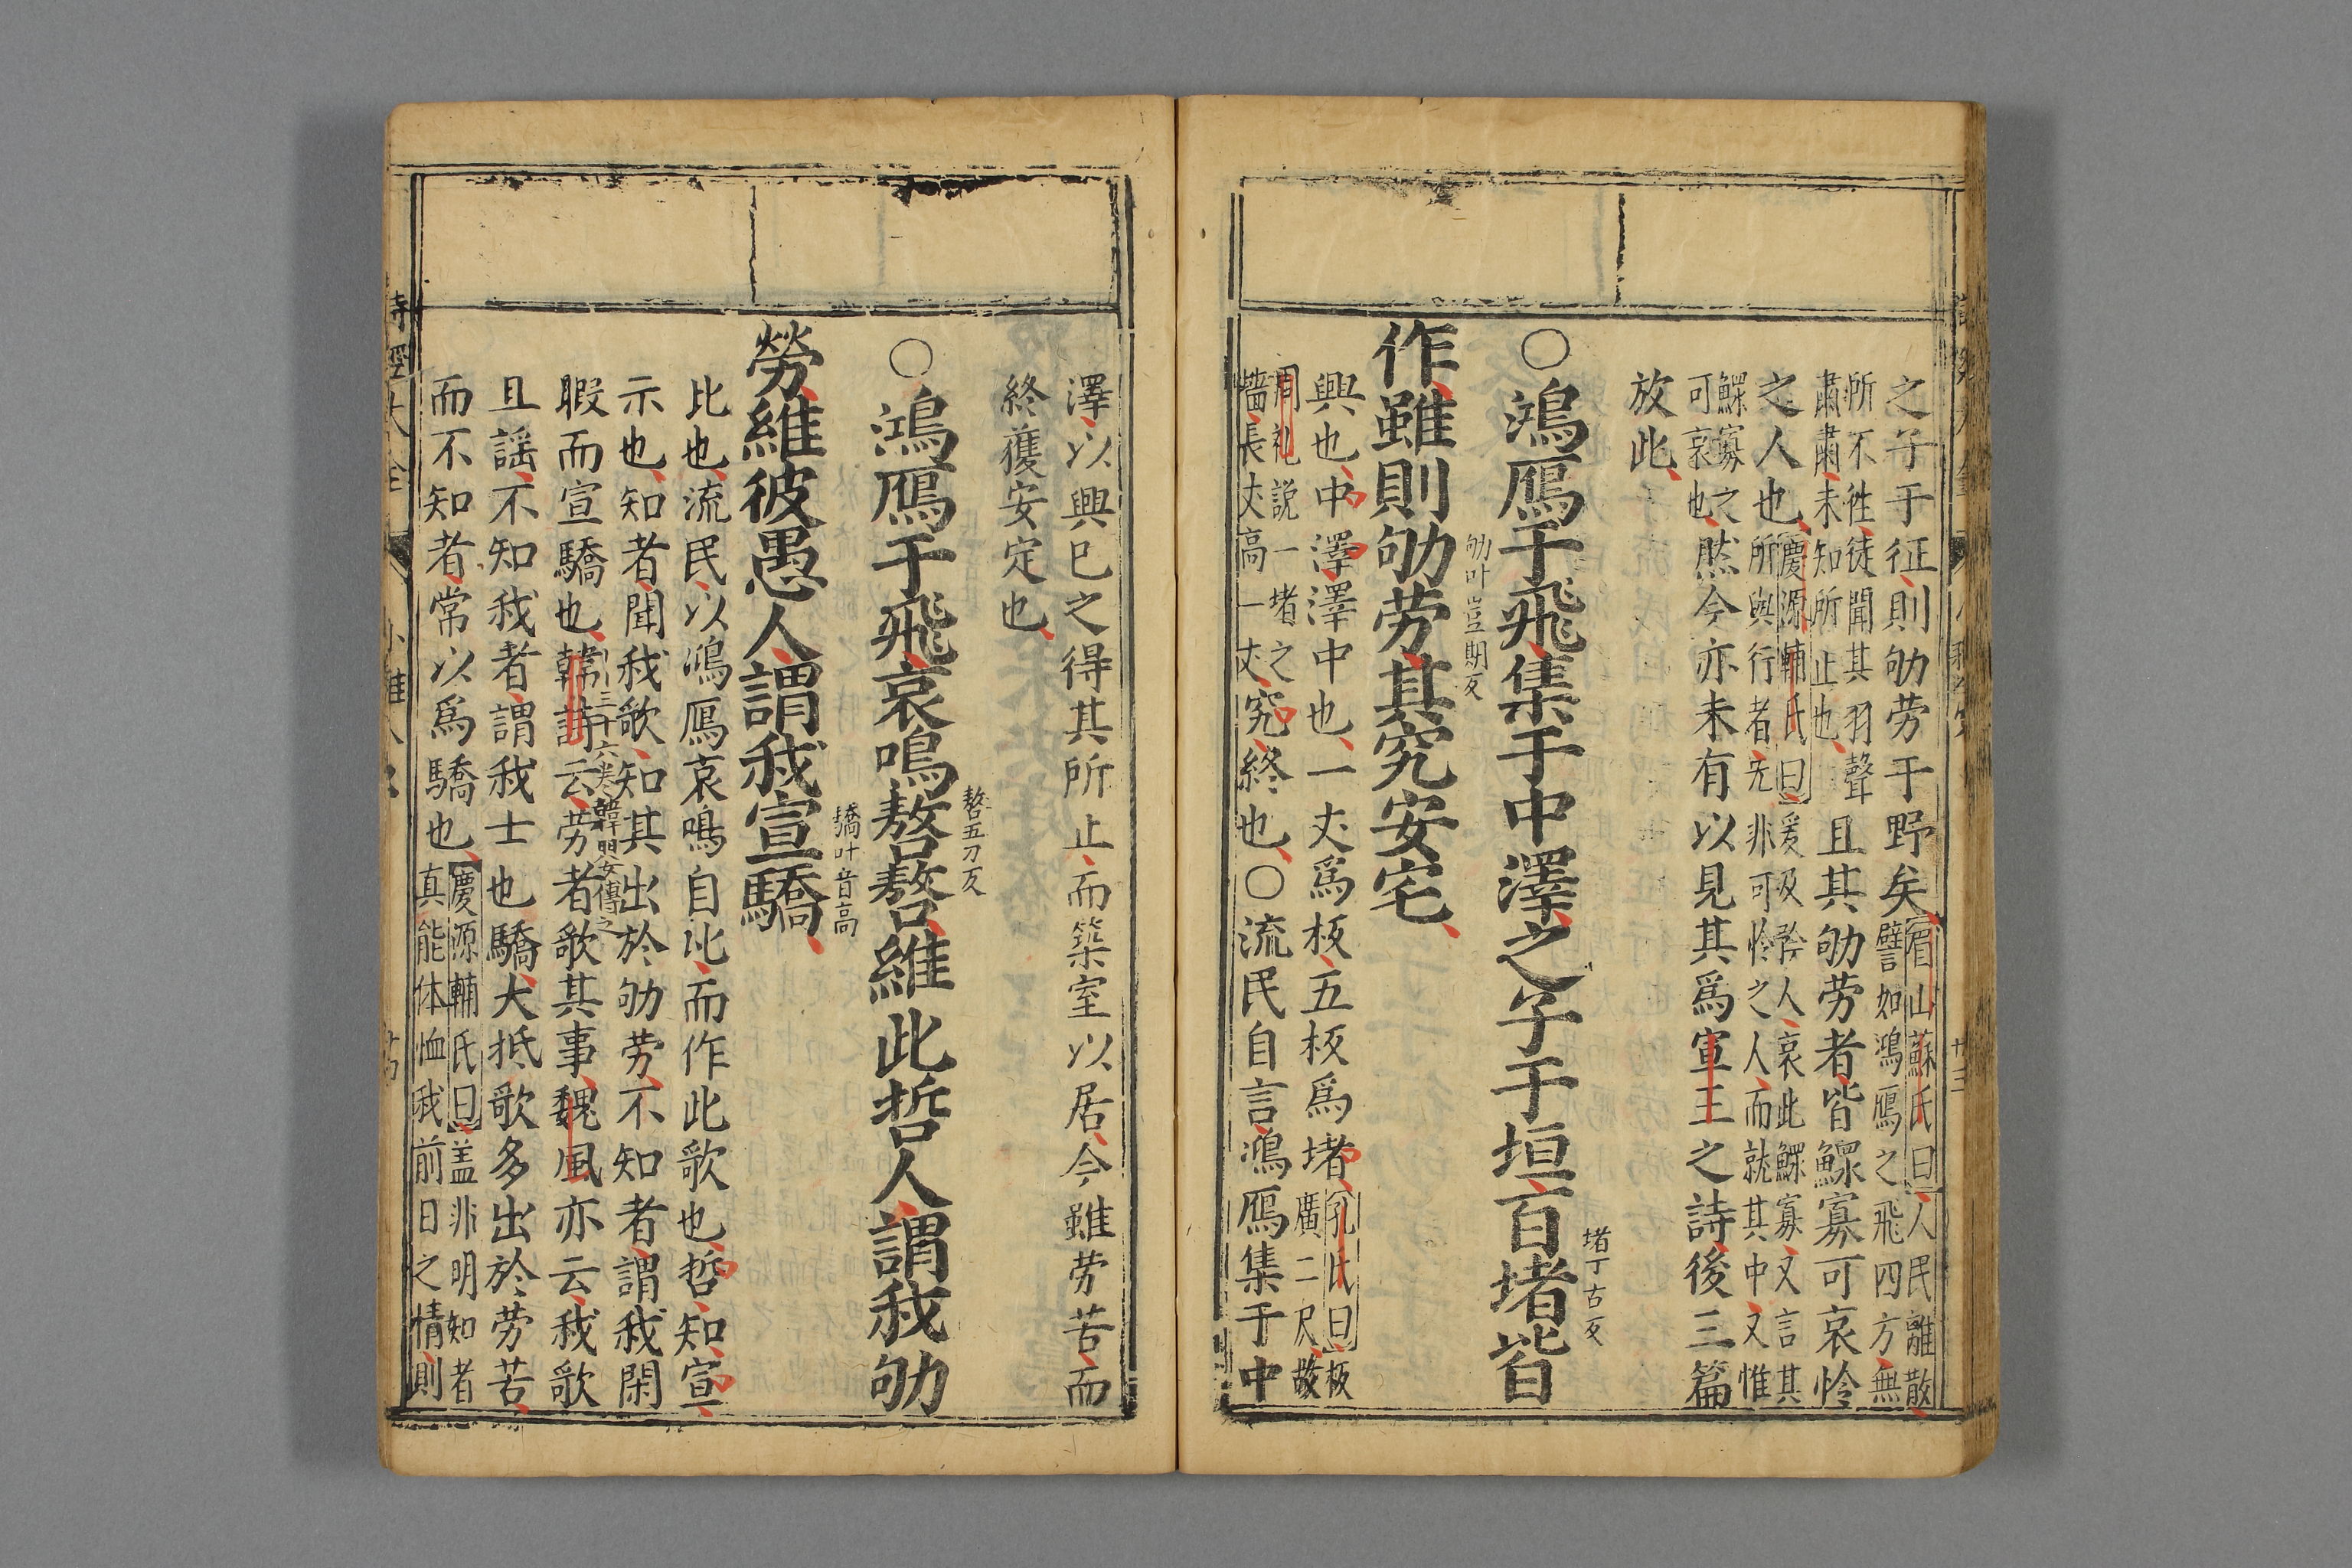 之子于征則劬劳于野矣眉山蘇氏曰人民離散
譬如鴻鴈之飛四方無
所不徃徒聞其羽聲
肅肅未知所止也且其劬劳者皆鰥寡可哀怜
之人也慶源輔氏曰爰及矜人哀此鰥寡又言其
所與行者无非可怜之人而就其中又惟
鰥寡之
可哀也然今亦未有以見其爲宣王之詩後三篇
放此
堵丁古反
○鴻鴈于飛集于中澤之子于垣百堵皆
劬叶豈期反
作雖則劬劳其究安宅
興也中澤澤中也一丈爲板五板爲堵孔氏曰板
廣二尺故
周礼説一堵之
墻長丈高一丈究終也○流民自言鴻鴈集于中
澤以興已之得其所止而築室以居今雖劳苦而
終獲安定也
嗸五刀反
○鴻鴈于飛哀鳴嗸嗸維此哲人謂我劬
驕叶音高
勞維彼愚人謂我宣驕
比也流民以鴻鴈哀鳴自比而作此歌也哲知宣
示也知者聞我歌知其出於劬劳不知者謂我閑
三十六卷韓嬰傳之
暇而宣驕也韓詩云劳者歌其事魏風亦云我歌
且謡不知我者謂我士也驕大抵歌多出於劳苦
而不知者常以爲驕也慶源輔氏曰盖非明知者
真能体恤我前日之情則